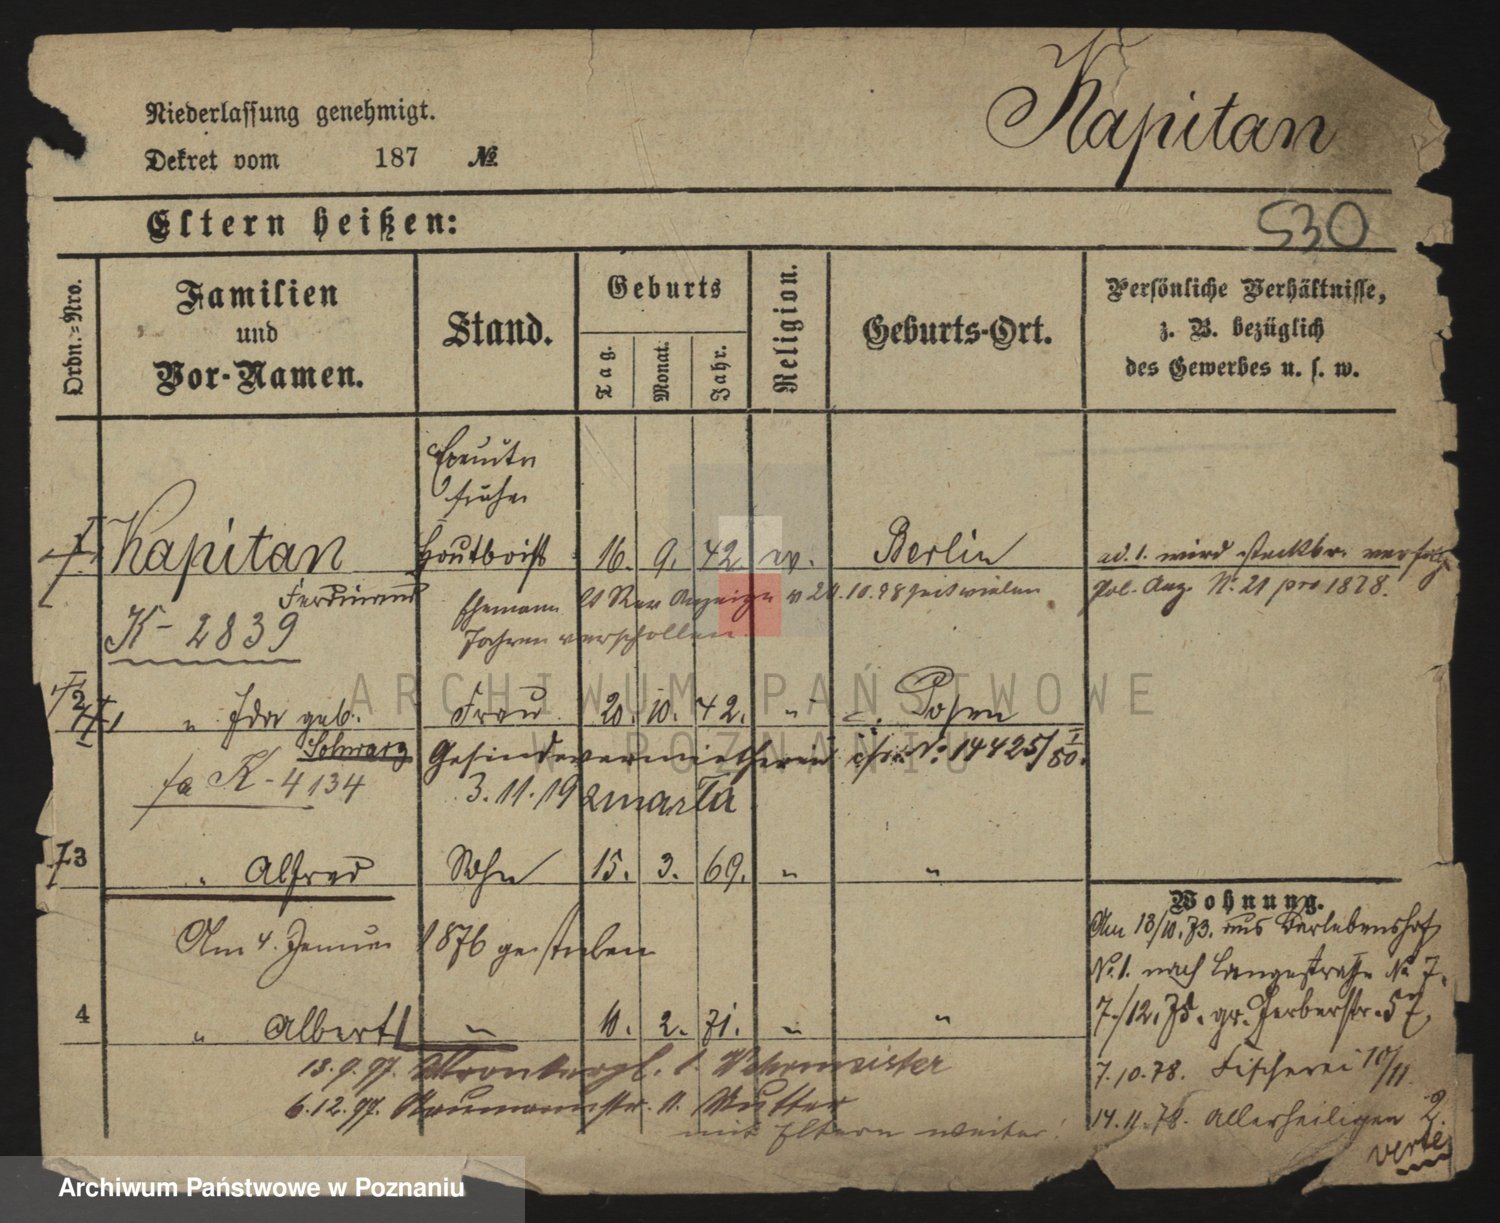 Niederlassung genehmigt.
Dekret vom 187 №
Kapitan
Eltern heißen:
530
Ordn.=Nro.
Familien
und
Vor-Namen.
Stand.
Geburts
Tag.
Monat.
Jahr.
Religion.
Geburts-Ort.
Persönliche Verhältnisse,
z. B. bezüglich
des Gewerbes u. s. w.
früher
Kapitan Hautboist 16. 9. 42 ev. Berlin ad. 1. wird steckbr. verfolgt
Ferdinand
Ehemann lt Anzeige v 24.10.98 seit vielen
Pol. Anz. No. 21 pro 1878.
K- 2839
Jahren verschollen
2 " Ida geb. Frau 20. 10. 42. " Posen
Schwarz Gesindevermietherin No. 14425/80.
fa K-4134
3.11.19 zmarła
3 " Alfred Sohn 15. 3. 69. " "
Am 4. Januar 1876 gestorben
Wohnung.
Am 13/10.73. aus
No. 1. nach Langestraße No 7.
4 " Albert " 10. 2. 71. " "
7./12. gr. Gerberstr. 57.
13.9.97.
7.10.78. Fischerei 10/11
6.12.97. Naumannstr. Mutter
14.11.78. Allerheiligen 2.
mit Eltern weiter!
verte
ARCHIWUM PAŃSTWOWE
W POZNANIU
Archiwum Państwowe w Poznaniu